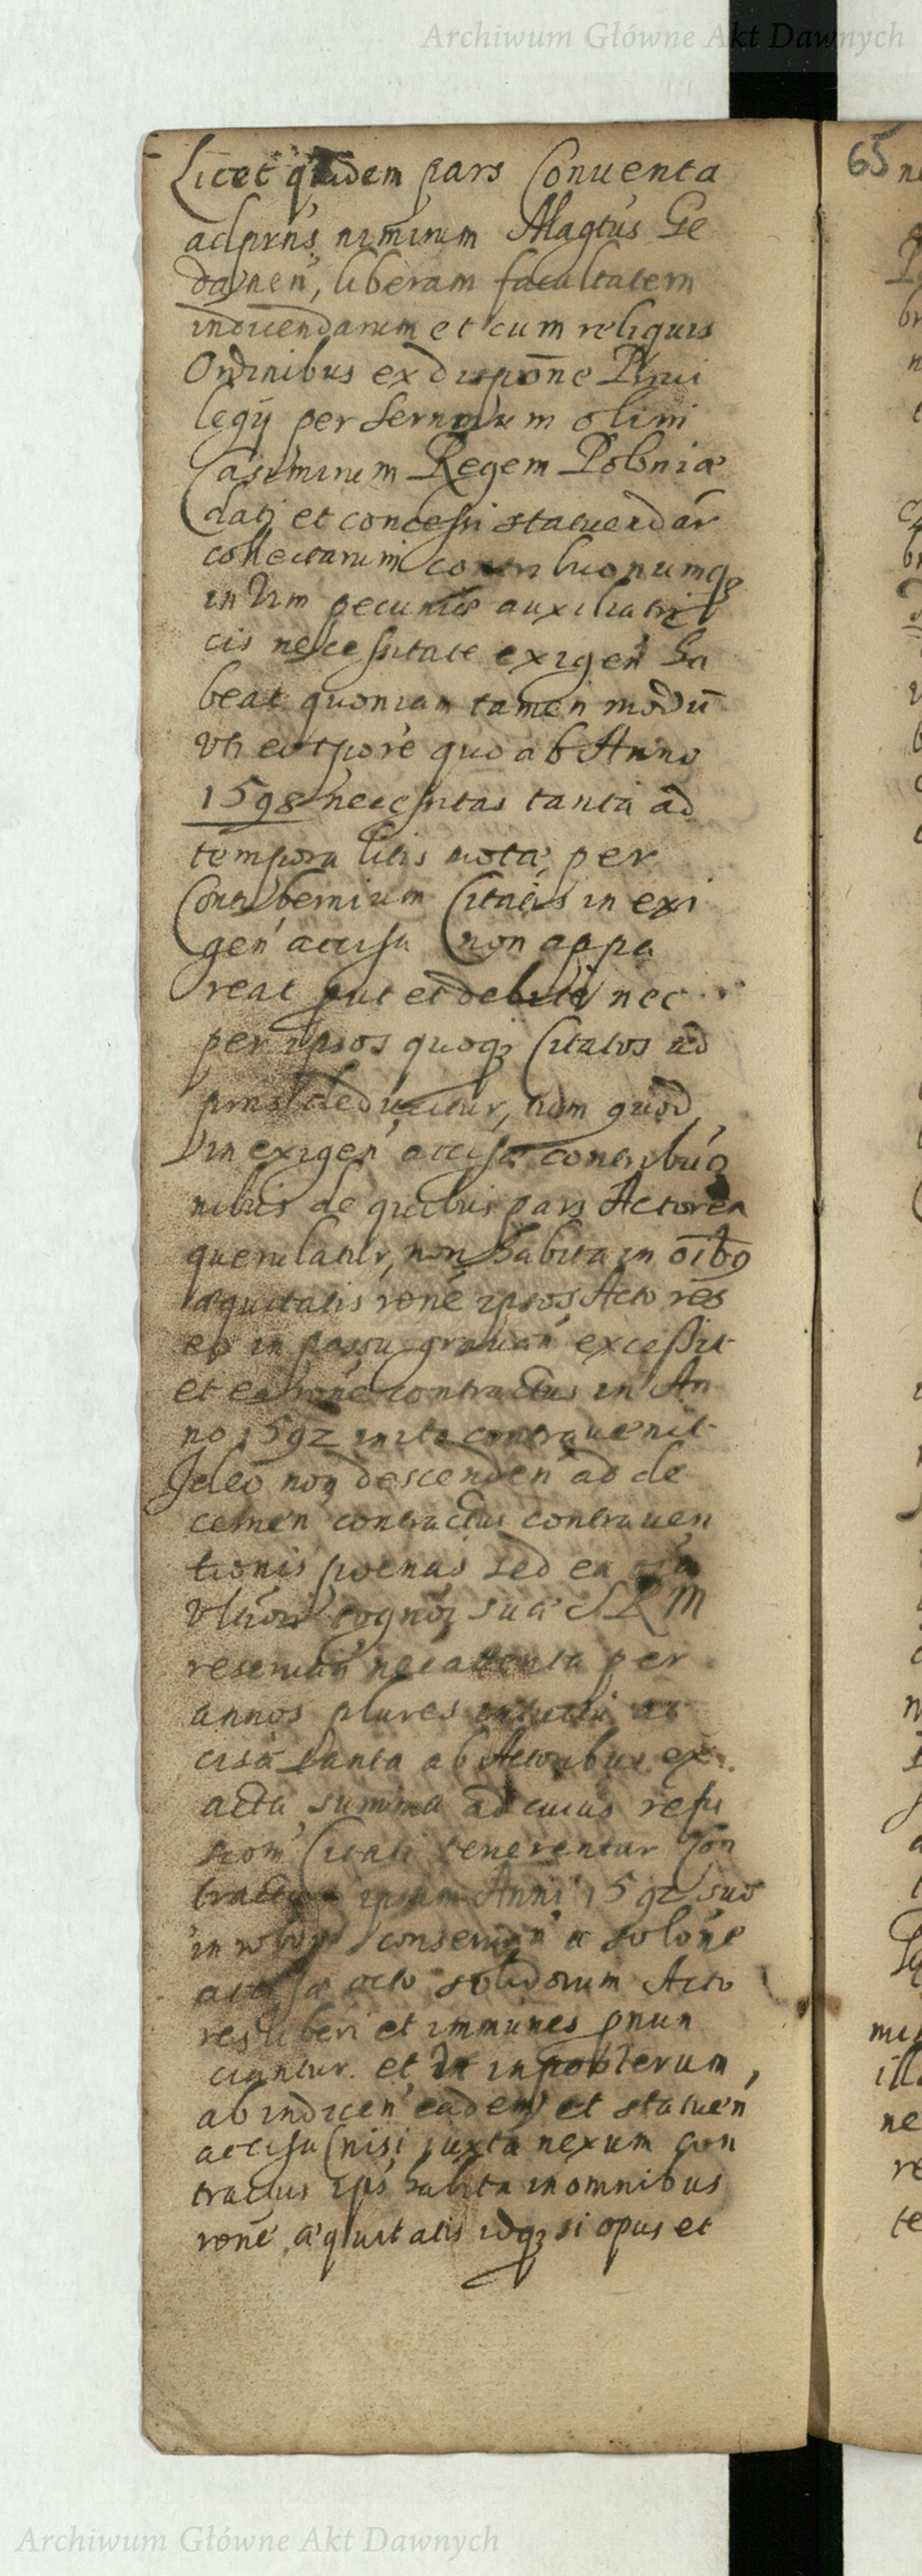 Archiwum Główne Akt Dawnych
65
Licet quidem pars Conuenta
ad prns nimirum Magtus Ge
danen, liberam facultatem
inducendarum et cum reliquis
Ordinibus ex dispone Priui
legij per Sernmum olim
Casimirum Regem Poloniæ
datj et concessi statuendar
collectarum contribuonumq
in Vim pecuniæ auxiliatri
cis necessitate exigen ha
beat quoniam tamen modu
Vti eo tpore quo ab Anno
1598 necessitas tanta ad
tempora litis motæ per
Contubernium Citatis in exi
gen accisa non appa
reat put et debite nec
per ipsos quoq Citatos ad
prns deducitur, tum quod
in exigen accisæ contribuo
nibus de quibus pars Actorea
querulatur, non habita in oibq
æquitatis rone ipsos Actores
eo in passu grauan excessit
et ea rone contractus in An
no 1592 inito contrauenit
Ideo non descenden ad de
cernen contractus contrauen
tionis poenas sed ea
Vltiori cognoi suæ S R M
reseruan nec attenta per
annos plures
cisa tanta ab Actoribus ex
acta summa ad cuius refu
sionem Citati tenerentur Con
tractum ipsum Anni 1592 suo
in robore conseruan a solone
accisæ octo solidorum Acto
res liberi et immunes pnun
ciantur. et in inposterum,
ab indicen eadem et statuen
accisa (nisi juxta nexum con
tractus ips habita in omnibus
rone, æquitatis idq si opus et
Archiwum Główne Akt Dawnych